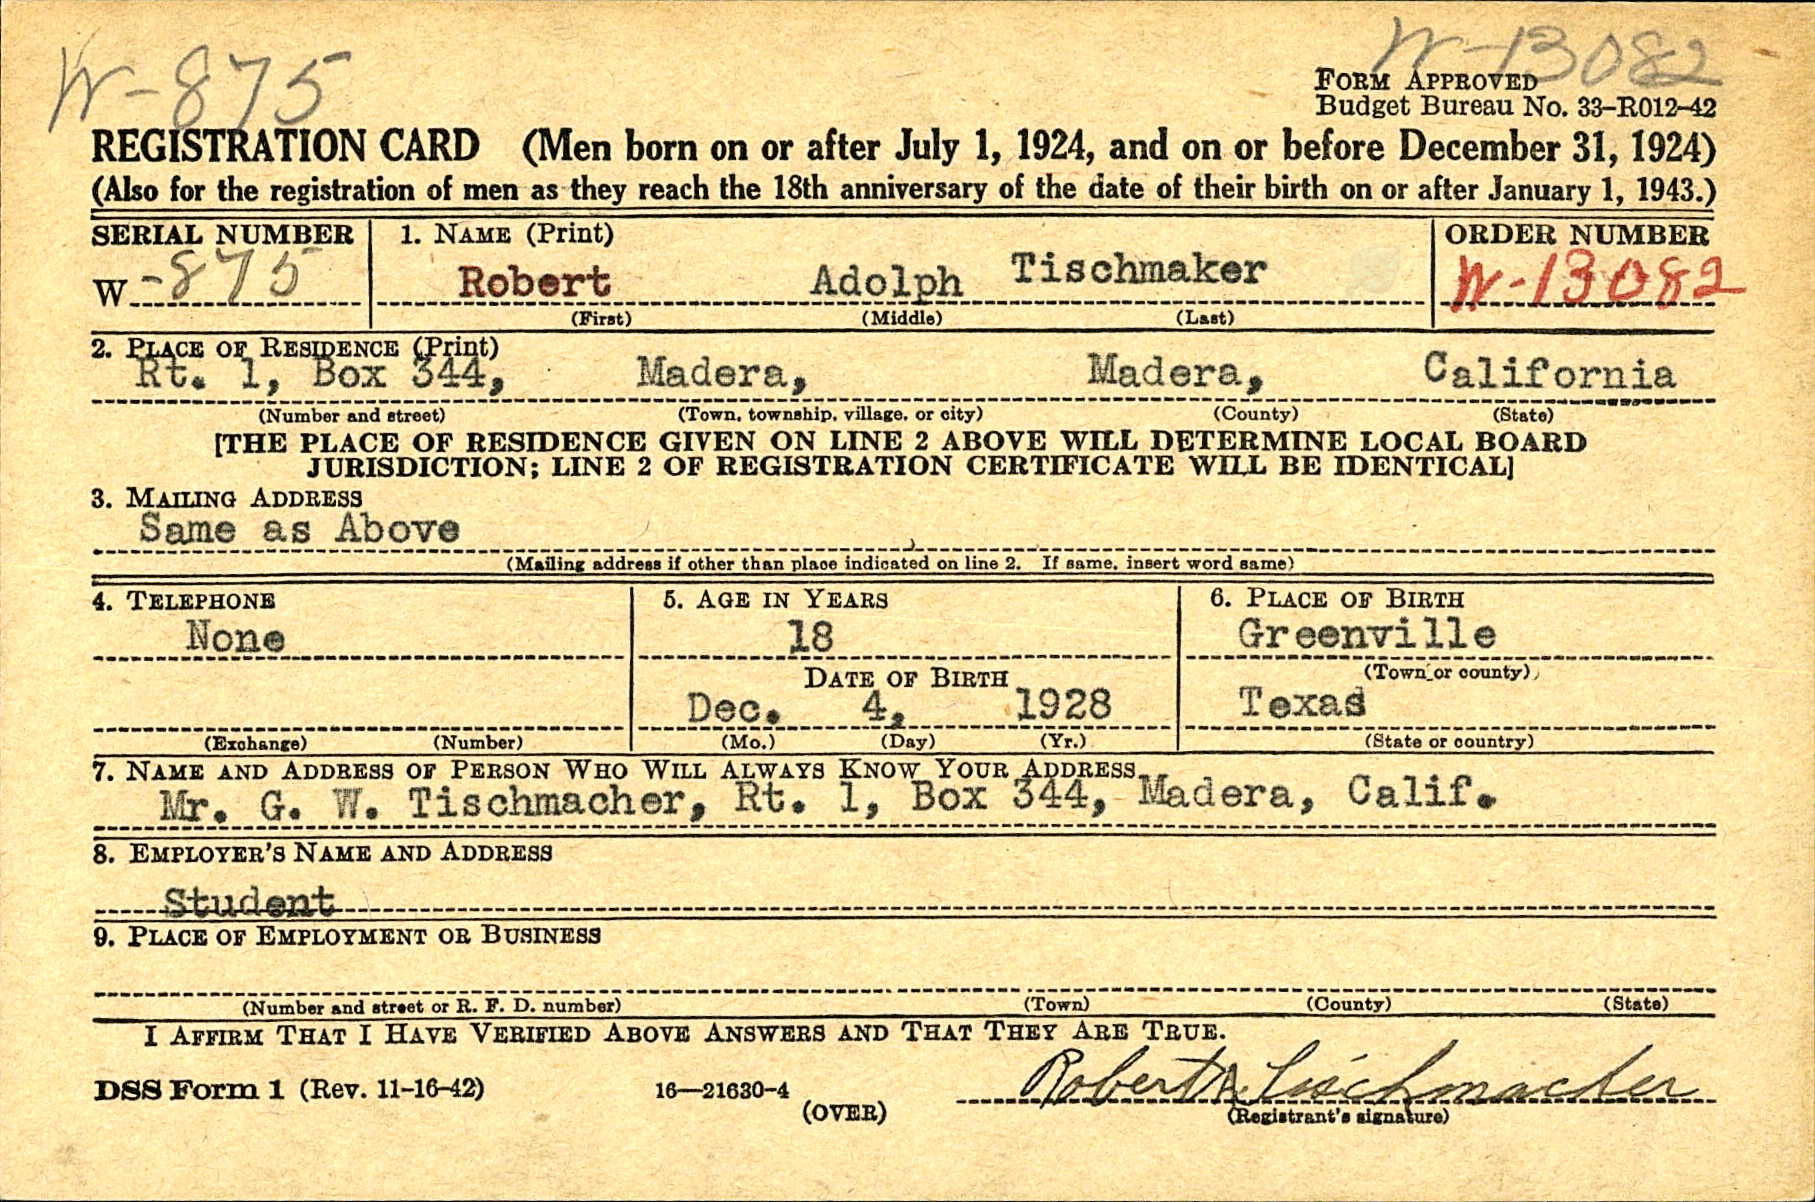 W-875
W-13082
FORM APPROVED
Budget Bureau No. 33-R012-42
REGISTRATION CARD (Men born on or after July 1, 1924, and on or before December 31, 1924)
(Also for the registration of men as they reach the 18th anniversary of the date of their birth on or after January 1, 1943.)
SERIAL NUMBER 1. NAME (Print) ORDER NUMBER
W -875 Robert Adolph Tischmaker W-13082
(First) (Middle) (Last)
2. PLACE OF RESIDENCE (Print)
Rt. 1, Box 344, Madera, Madera, California
(Number and street) (Town, township, village, or city) (County) (State)
[THE PLACE OF RESIDENCE GIVEN ON LINE 2 ABOVE WILL DETERMINE LOCAL BOARD
JURISDICTION; LINE 2 OF REGISTRATION CERTIFICATE WILL BE IDENTICAL]
3. MAILING ADDRESS
Same as Above
(Mailing address if other than place indicated on line 2. If same, insert word same)
4. TELEPHONE 5. AGE IN YEARS 6. PLACE OF BIRTH
None 18 Greenville
DATE OF BIRTH (Town or county)
Dec. 4, 1928 Texas
(Exchange) (Number) (Mo.) (Day) (Yr.) (State or country)
7. NAME AND ADDRESS OF PERSON WHO WILL ALWAYS KNOW YOUR ADDRESS
Mr. G. W. Tischmacher, Rt. 1, Box 344, Madera, Calif.
8. EMPLOYER'S NAME AND ADDRESS
Student
9. PLACE OF EMPLOYMENT OR BUSINESS
(Number and street or R. F. D. number) (Town) (County) (State)
I AFFIRM THAT I HAVE VERIFIED ABOVE ANSWERS AND THAT THEY ARE TRUE.
DSS Form 1 (Rev. 11-16-42) 16—21630-4 Robert A. Tischmacher
(OVER) (Registrant's signature)